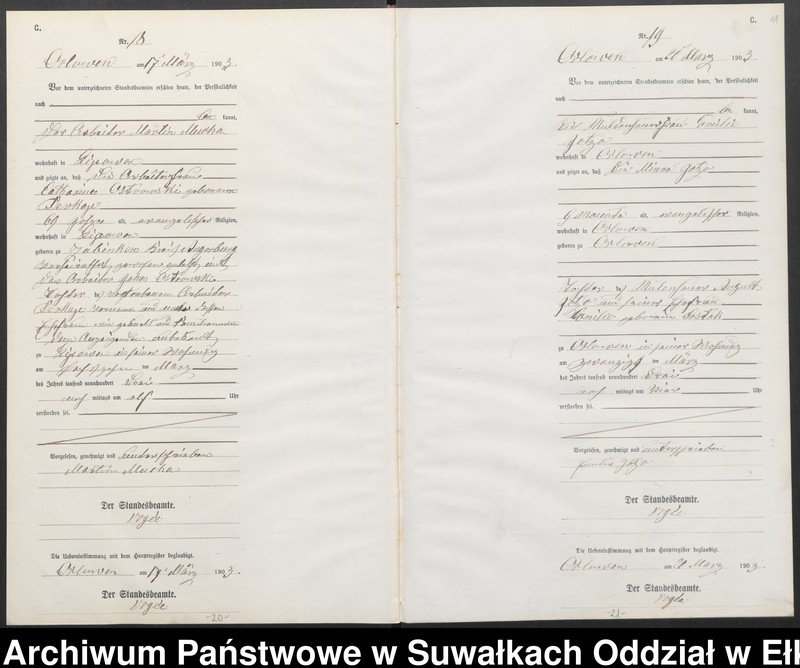 C.
Nr. 18
Orlowen am 17. März 1903.
Vor dem unterzeichneten Standesbeamten erschien heute, der Persönlichkeit
nach
be kannt,
Der Arbeiter Martin Mucha
wohnhaft in Lipowen
und zeigte an, daß die Arbeiterfrau
Catharina Ostrowski geborene
69 Jahre alt, evangelischer Religion,
wohnhaft in Lipowen
geboren zu Jabłonken Kreis Angerburg
den Arbeiter Johan Ostrowski
Tochter des verstorbenen Arbeiter
Ehefrau
dem Anzeigenden unbekannt
zu Lipowen in seiner Wohnung
am sechszehn ten März
des Jahres tausend neunhundert drei
nach mittags um elf Uhr
verstorben sei.
Vorgelesen, genehmigt und unterschrieben
Martin Mucha
Der Standesbeamte.
Vogée
Die Uebereinstimmung mit dem Hauptregister beglaubigt.
Orlowen am 17. März 1903.
Der Standesbeamte.
Vogée
-20-
C.
Nr. 19
Orlowen am 21. März 1903.
Vor dem unterzeichneten Standesbeamten erschien heute, der Persönlichkeit
nach
be kannt,
die Emilie
Jotzo
wohnhaft in Orlowen
und zeigte an, daß die Minna Jotzo
9 Monate alt, evangelischer Religion,
wohnhaft in Orlowen
geboren zu Orlowen
Tochter des August
Jotzo und seiner Ehefrau
Emilie geborenen
zu Orlowen in seiner Wohnung
am zwanzigs ten März
des Jahres tausend neunhundert drei
nach mittags um vier Uhr
verstorben sei.
Vorgelesen, genehmigt und unterschrieben
Emilie Jotzo
Der Standesbeamte.
Vogée
Die Uebereinstimmung mit dem Hauptregister beglaubigt.
Orlowen am 21. März 1903.
Der Standesbeamte.
Vogée
-21-
Archiwum Państwowe w Suwałkach Oddział w Eł